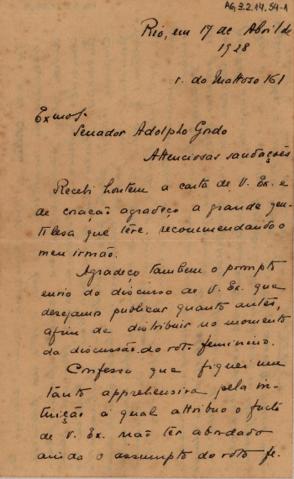 AG,3.2.14,54-1
Rio, em 17 de Abril de
1928
r. do Mattoso 161
Exmo Sr.
Senador Adolpho Gordo
Attenciosas saudações
Recebi hontem a carta de V. Ex. e
de coração agradeço a grande gen-
tilesa que têve, recommendando o
meu irmão.
Agradeço tambem o prompto
envio do discurso de V. Ex. que
desejamos publicar quanto antes,
afim de distribuir no momento
da discussão do voto feminino.
Confesso que fiquei um
tanto apprehensiva pela in-
tuição a qual attribuo o facto
de V. Ex. não têr abordado
ainda o assumpto do voto fe-